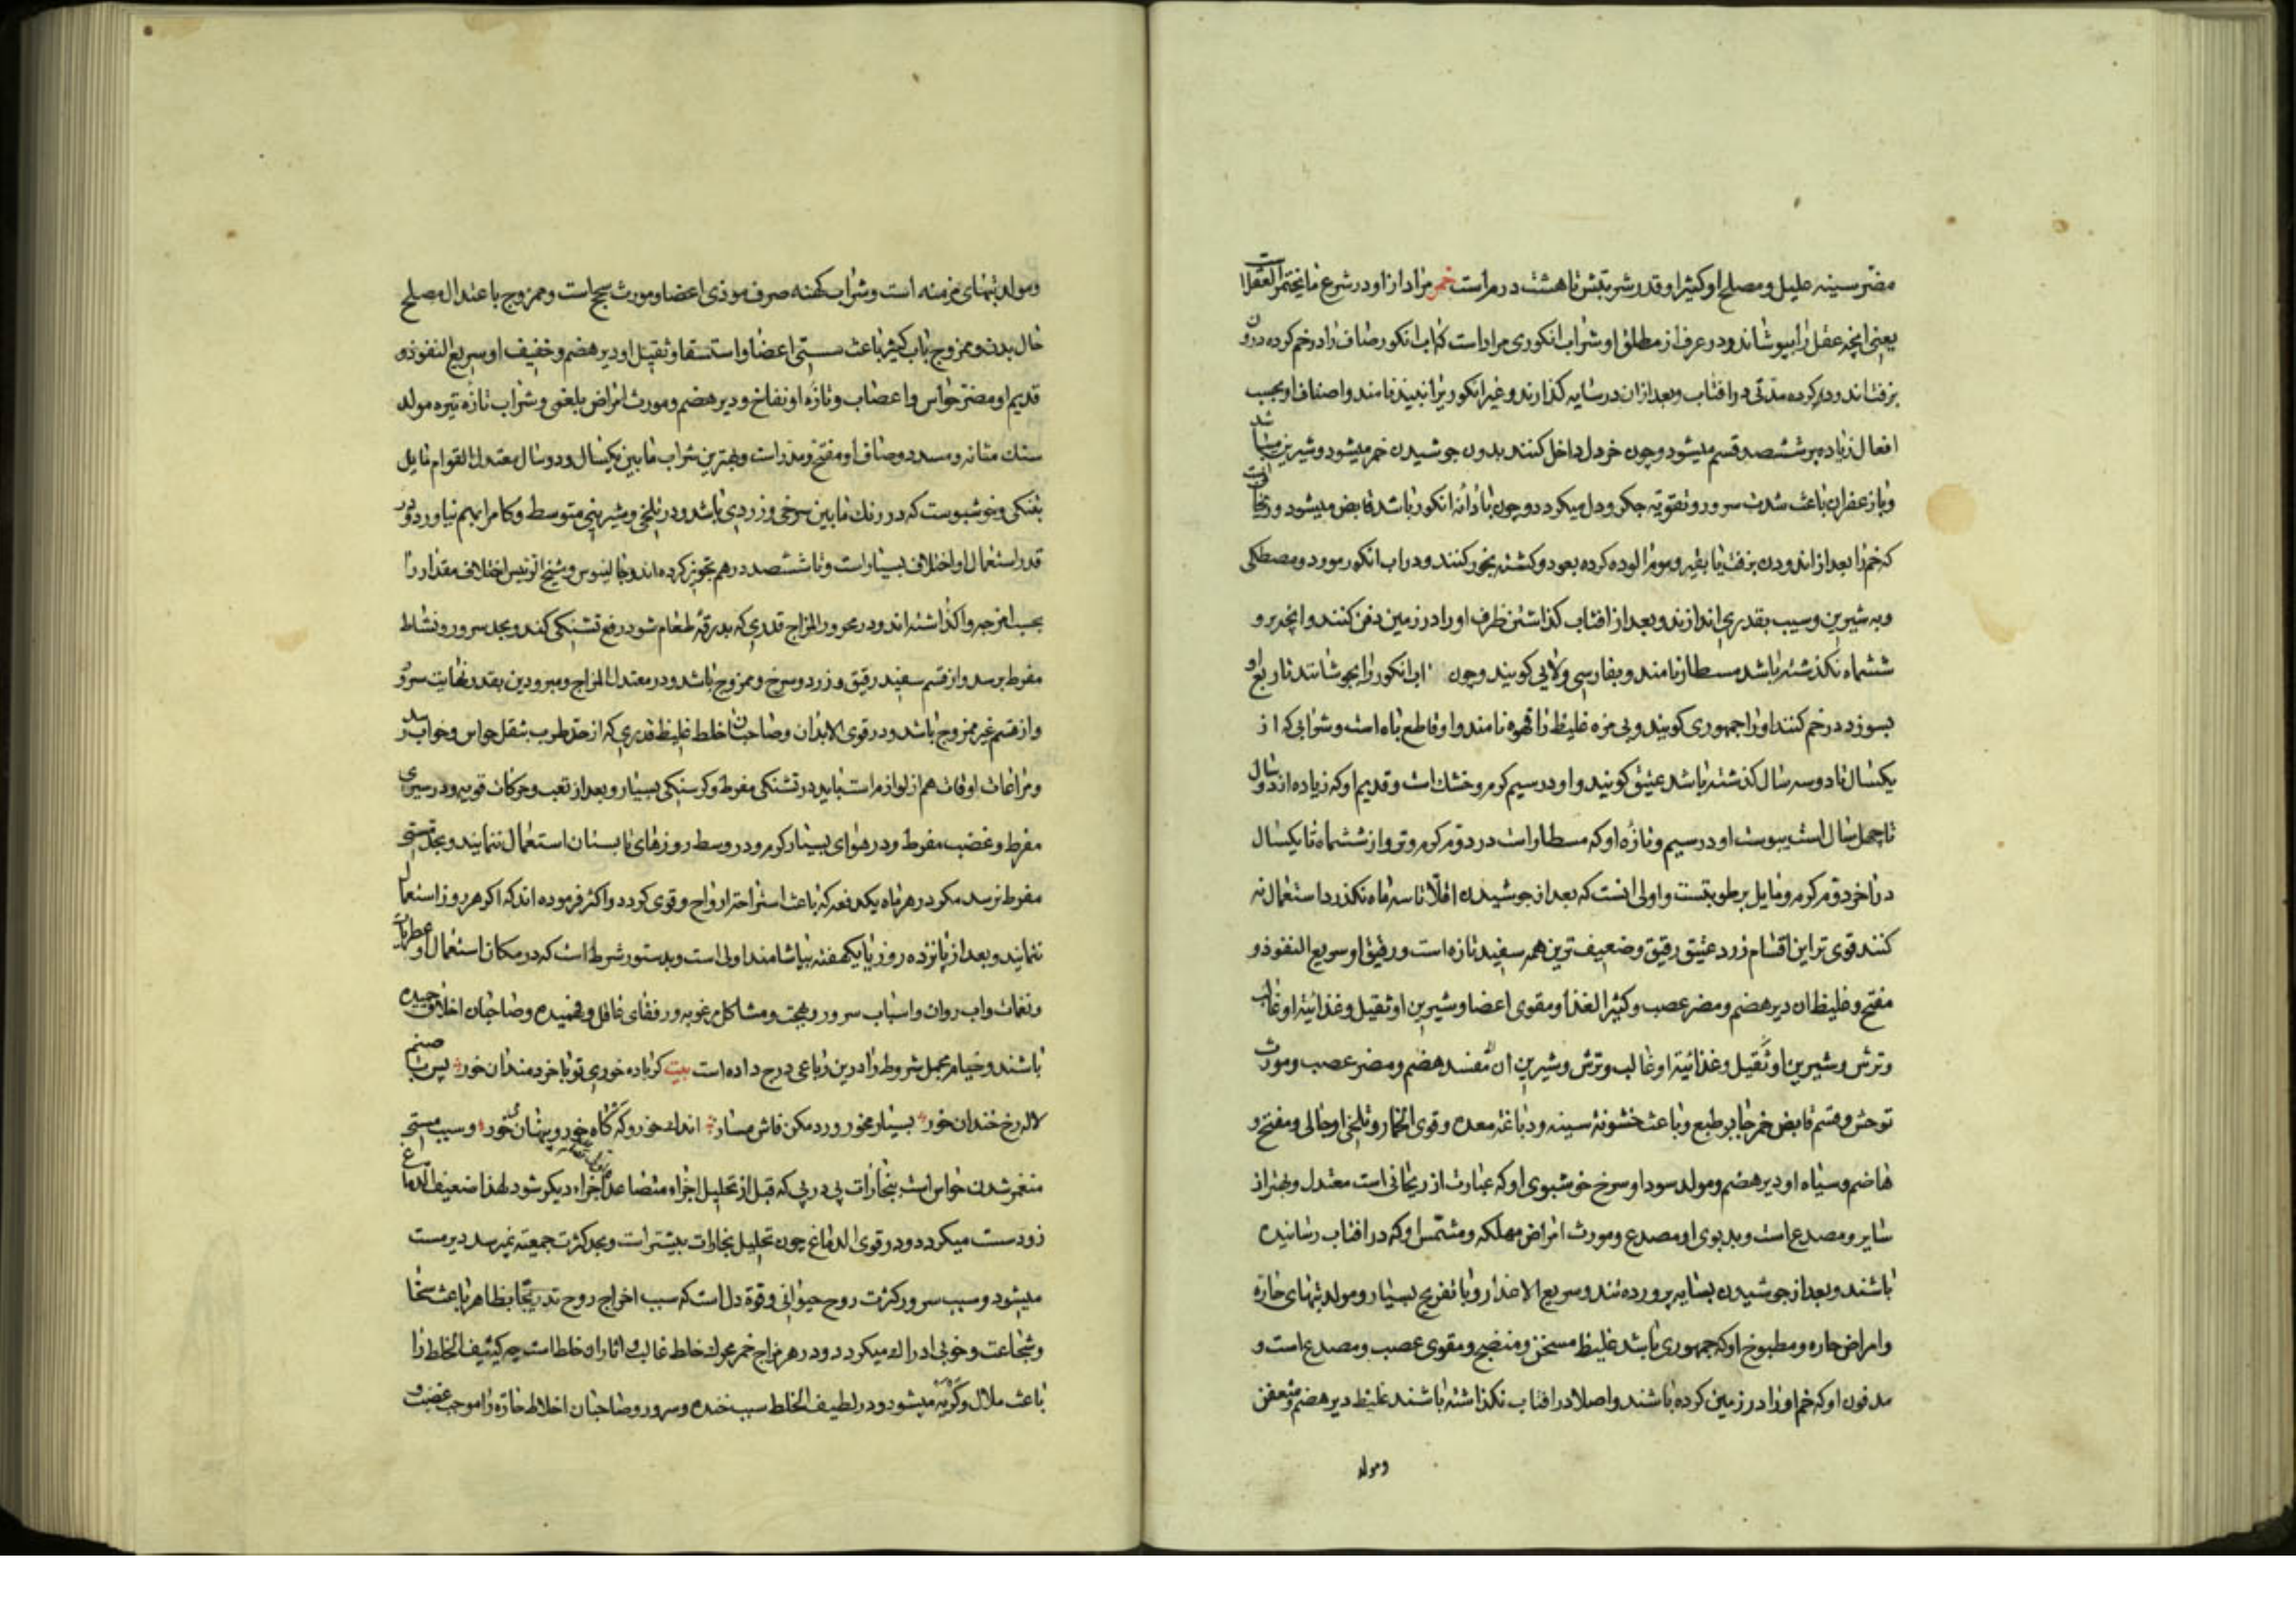 مضر سینه علیل و مصلح او کثیرا و قدر شربتش تا هشت درم است خمر مراد از او در شرع ما یخمر العقل است
یعنی انچه عقل را بپوشاند و در عرف از مطلق او شراب انکوری مراد است که اب انکور صاف را در خم کرده درون
بزفت اندود کرده مدتی در افتاب و بعد از ان در سایه کذارند و غیر انکوری را نبیذ نامند و اصناف او بحسب
افعال زیاده بر ششصد قسم میشود و چون خردل داخل کنند بدون جوشیدن خمر میشود و شیرین میباشد
و با زعفران باعث شدت سرور و تقویة جکر و دل میکردد و چون با دانه انکور باشد قابض میشود و
که خم را بعد از اندودن بزفت یا بقیر و موم الوده کرده بعود و کشنه بخور کنند و در اب انکور مورد و مصطکی
و به شیرین و سیب بقدری اندازند و بعد از افتاب کذاشتن ظرف او را در زمین دفن کنند و انچه برو
ششماه نکذشته باشد مسطار نامند و بفارسی ولایی کویند و چون اب انکور را بجوشانند تا ربع او
بسوزد در خم کنند او را جمهوری کویند و بی مزه غلیظ را قهوه نامند و او قاطع باه است و شرابی که از
یکسال تا دو سه سال کذشته باشد عتیق کویند و او در سیم کرم و خشک است و قدیم او که زیاده از دو سال
تا چهل سال است یبوست او در سیم و تازه او که مسطار است در دوم کرم و تر و از ششماه تا یکسال
در اخر دوم کرم و مایل برطوبتست و اولی انست که بعد از جوشیدن اقلا تا سه ماه نکذرد استعمال نه
کنند قوی تر این اقسام زرد عتیق رقیق و ضعیف ترین همه سفید تازه است و رقیق او سریع النفوذ و
مفتح و غلیظ ان دیر هضم و مضر عصب و کثیر الغذا و مقوی اعضا و شیرین او ثقیل و غذائیة او غالب
و ترش و شیرین او ثقیل و غذائیة او غالب و ترش و شیرین ان مفسد هضم و مضر عصب و مورث
توحش و قسم قابض خمر حابس طبع و باعث خشونة سینه و دباغة معده و قوی الخمار و تلخ او جالی و مفتح و
هاضم و سیاه او دیر هضم و مولد سودا و سرخ خوشبوی او که عبارت از ریحانی است معتدل و بهتر از
سایر و مصدع است و بدبوی او مصدع و مورث امراض مهلکه و مشمس او که در افتاب رسانیده
باشند و بعد از جوشیدن بسایه پرورده تند و سریع الانحدار و با تفریح بسیار و مولد تبهای حاره
و امراض حاره و مطبوخ او که جمهوری باشد غلیظ مسخن و منضج و مقوی عصب و مصدع است و
مدفون او که خم او را در زمین کرده باشند و اصلا در افتاب نکذاشته باشند غلیظ دیر هضم و متعفن
و مولد
و مولد تبهای مزمنه است و شراب کهنه صرف موذی اعضا و مورث سحج است و ممزوج باعتدال مصلح
حال بدن و ممزوج باب کثیر باعث سستی اعضا و استسقا و ثقیل او دیر هضم و خفیف او سریع النفوذ و
قدیم او مضر حواس و اعصاب و تازه او نفاخ و دیر هضم و مورث امراض بلغمی و شراب تازه تیره مولد
سنک مثانه و مسدد و صاف او مفتح و مدر است و بهترین شراب مابین یکسال و دو سال معتدل القوام مایل
بتنکی و خوشبوست که در رنک مابین سرخی و زردی باشد و در تلخی و شیرینی متوسط و کام را بهم نیاورد و در
قدر استعمال او اختلاف بسیار است و تا ششصد درهم تجویز کرده اند و جالینوس و شیخ الرئیس اختلاف مقدار را
بحسب امزجه واکذاشته اند و در محرور المزاج قدری که بدرقه طعام شود رفع تشنکی کند و بحد سرور و نشاط
مفرط برسد و از قسم سفید رقیق و زرد و سرخ و ممزوج باشد و در معتدل المزاج و مبرودین بقدر نهایت سرور
و از قسم غیر ممزوج باشد و در قوی الابدان و صاحبان اخلاط غلیظ قدری که از حد طرب بثقل حواس و خواب رسد
و مراعات اوقات هم از لوازم است باید در تشنکی مفرط و کرسنکی بسیار و بعد از تعب و حرکات قویه و در سیری
مفرط و غضب مفرط و در هوای بسیار کرم و در وسط روزهای تابستان استعمال ننمایند و بحد مستی
مفرط نرسد مکر در هر ماه یکدفعه که باعث استراحت ارواح و قوی کردد و اکثر فرموده اند که اکر هر روز استعمال
ننمایند و بعد از پانزده روز یا یکهفته بیاشامند اولی است و بدستور شرط است که در مکان استعمال او عطریات
و نغمات و اب روان و اسباب سرور و بهجت و مشاکل مرغوبه و رفقای عاقل و فهمیده و صاحبان اخلاق حمیده
باشند و خیام مجمل شروط را درین رباعی درج داده است بیت کر باده خوری تو با خردمندان خور پس با صنم
لاله رخ خندان خور بسیار مخور ورد مکن فاش مساز اندک خور و که کاه خور و پنهان خور و سبب مستی
منغمر شدن حواس است ببخارات پی در پی که قبل از تحلیل اجزاء متصاعد اجزاء دیکر شود لهذا ضعیف الدماغ
زود مست میکردد و در قوی الدماغ چون تحلیل بخارات بیشتر است و بحد کثرت جمعیته نمیرسد دیر مست
میشود و سبب سرور کثرت روح حیوانی و قوة دل است که سبب اخراج روح تدریجا بظاهر باعث سخا
و شجاعت و خوبی ادراک میکردد و در هر مزاج خمر محرک خلط غالب و اثار ان خلط است چه کثیف الخلط را
باعث ملال و کریه میشود و در لطیف الخلط سبب خنده و سرور و صاحبان اخلاط حاره را موجب غضب و